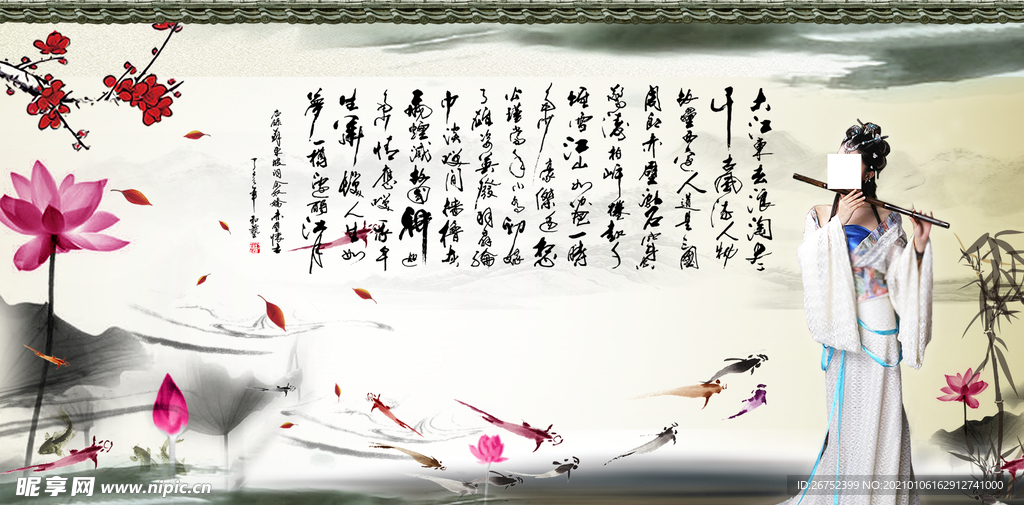 大江東去浪淘盡
千古風流人物
故壘西邊人道是三國
周郎赤壁亂石穿空
驚濤拍岸捲起千
堆雪江山如畫一時
多少豪傑遙想
公瑾當年小喬初嫁
了雄姿英發羽扇綸
巾談笑間檣櫓灰
飛煙滅故國神遊
多情應笑我早
生華髮人生如
夢一樽還酹江月
昵享网 www.nipic.cn
ID:26752399 NO:20210106162912741000